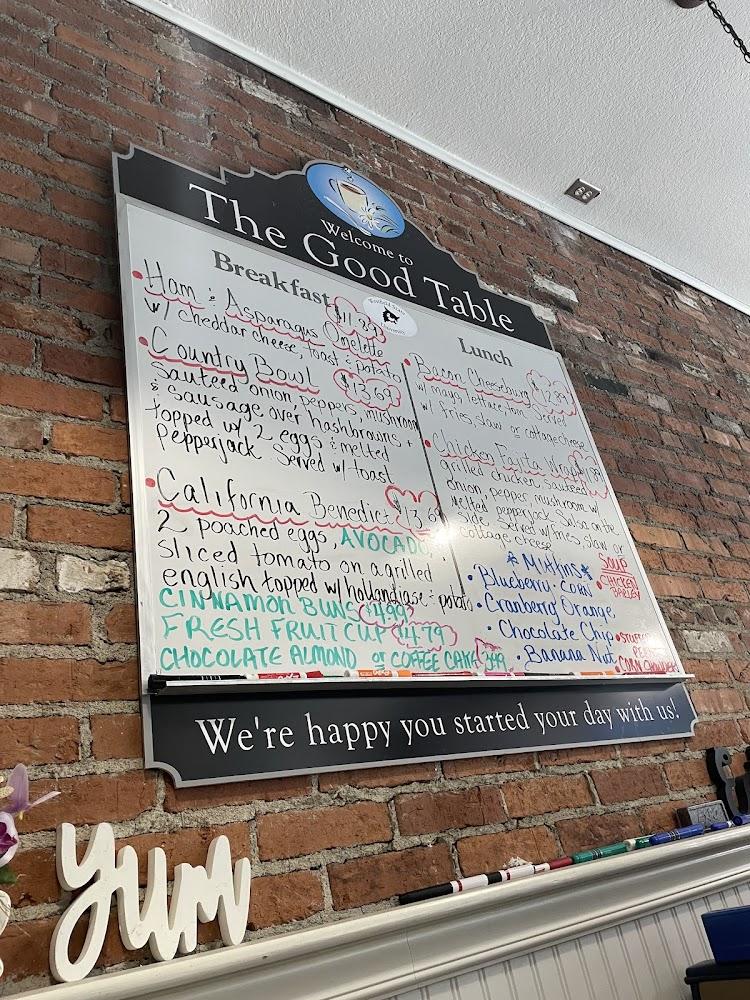 Welcome to
The Good Table
Breakfast
Ham & Asparagus Omelette $11.89
w/ cheddar cheese, toast & potato
Country Bowl $13.69
Sauteed onion, peppers, mushroom
& sausage over hashbrowns +
topped w/ 2 eggs & melted
Pepperjack. Served w/ toast
California Benedict $13.69
2 poached eggs, AVOCADO,
sliced tomato on a grilled
english topped w/ hollandiase + potato
CINNAMON BUNS $4.99
FRESH FRUIT CUP $4.79
CHOCOLATE ALMOND or COFFEE CAKE 3.99
Lunch
Bacon Cheeseburg
w/ mayo, lettuce + tom. Served
w/ fries, slaw or cottage cheese
Chicken Fajita Wrap
grilled chicken, sauteed
onion, pepper, mushroom w/
melted pepperjack. Salsa on the
side. Served w/ fries, slaw or
cottage cheese
* Muffins *
Blueberry · Corn
Cranberry Orange
Chocolate Chip
Banana Nut
SOUP
CHICKEN
BARLEY
STUFFED
CORN CHOWDER
We're happy you started your day with us!
yum